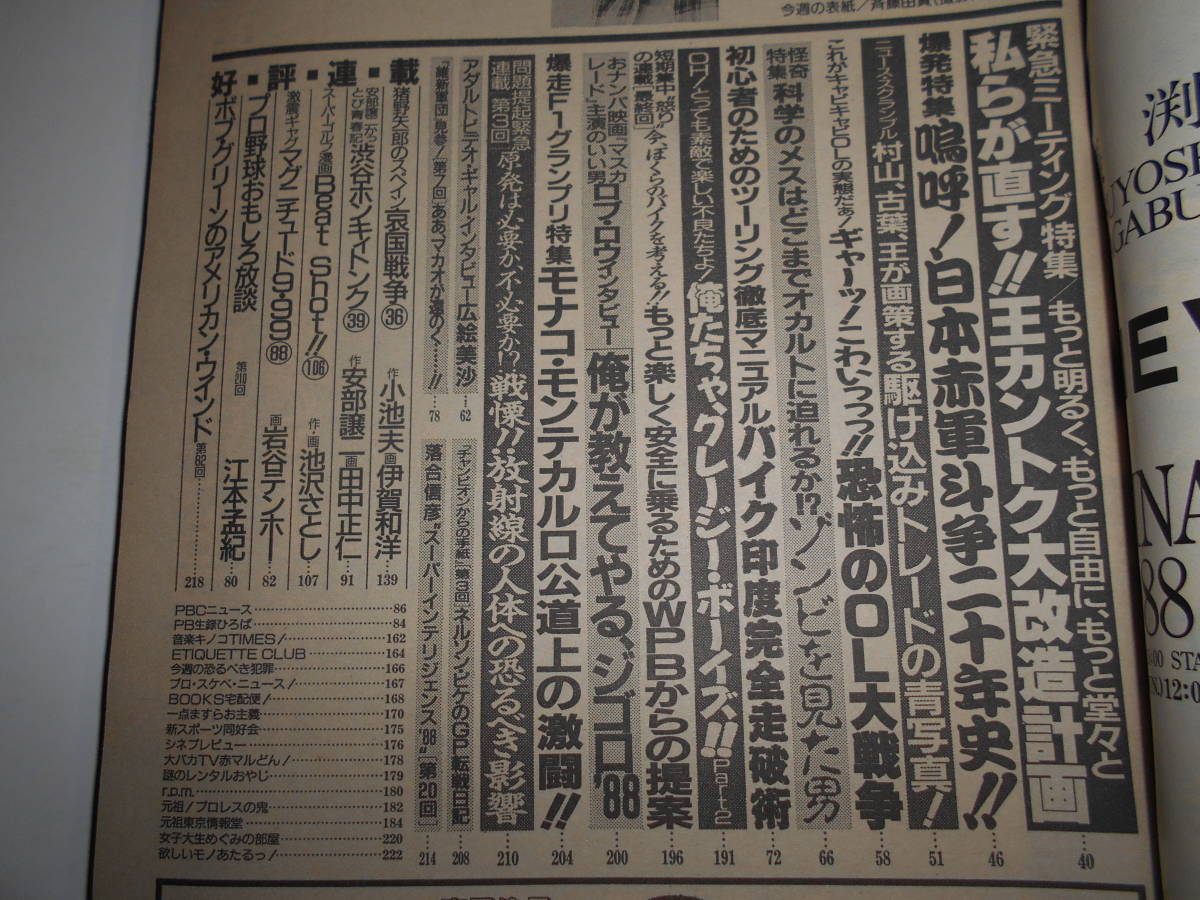 今週の表紙／斉藤由貴
緊急ミーティング特集／もっと明るく、もっと自由に、もっと堂々と
私らが直す!!王カントク大改造計画
40
爆発特集 嗚呼！日本赤軍斗争二十年史!!
46
ニュース・スクランブル 村山、古葉、王が画策する駆け込みトレードの青写真！
51
これがキャピキャピOLの実態だぁ！ギャーッ！こわいっっっ!!恐怖のOL大戦争
58
怪奇特集 科学のメスはどこまでオカルトに迫れるか!?ゾンビを見た男
66
初心者のためのツーリング徹底マニュアルバイク印度完全走破術
72
OH！とっても素敵で楽しい不良たちよ！俺たちゃ、クレージー・ボーイズ!!Part2
191
短期集中 怒りの連載［最終回］“今、ぼくらのバイクを考える!!もっと楽しく安全に乗るためのWPBからの提案
196
おナンパ映画『マスカレード』主演のいい男 ロブ・ロウインタビュー 俺が教えてやる、ジゴロ'88
200
爆走F1グランプリ特集モナコ・モンテカルロ公道上の激闘!!
204
問題提起緊急連載［第3回］原発は必要か、不必要か!?戦慄!!放射線の人体への恐るべき影響
210
アダルトビデオ・ギャル・インタビュー 広絵美沙
62
「チャンピオンからの手紙」［第3回］ネルソン・ピケのGP転戦日記
208
「維新軍団」見参！［第7回］ああ、マカオが遠のく……!!
78
落合信彦“スーパーインテリジェンス'88”［第20回］
214
好■評■連■載
猪野矢郎のスペイン 哀国戦争㊱
作 小池一夫 画 伊賀和洋
139
安部譲二かっとび青春記 渋谷ホンキィトンク㊴
作 安部譲二 画 田中正仁
91
スーパーゴルフ漫画 Beat Shot!!(106)
作・画 池沢さとし
107
激震ギャグ マグニチュード9・99(88)
画 岩谷テンホー
82
プロ野球おもしろ放談
第210回
江本孟紀
80
ボブ・グリーンのアメリカン・ウインド
第82回
218
PBCニュース 86
PB生録ひろば 84
音楽キノコTIMES！ 162
ETIQUETTE CLUB 164
今週の恐るべき犯罪 166
プロ・スケベ・ニュース！ 167
BOOKS宅配便！ 168
一点ますらお主義 170
新スポーツ同好会 175
シネプレビュー 176
大バカTV赤マルどん！ 178
謎のレンタルおやじ 179
r.p.m. 180
元祖！プロレスの鬼 182
元祖東京情報堂 184
女子大生めぐみの部屋 220
欲しいモノあたるっ！ 222
渕
YOSE
GABU
EY
NA
88
:00 STA
12:0